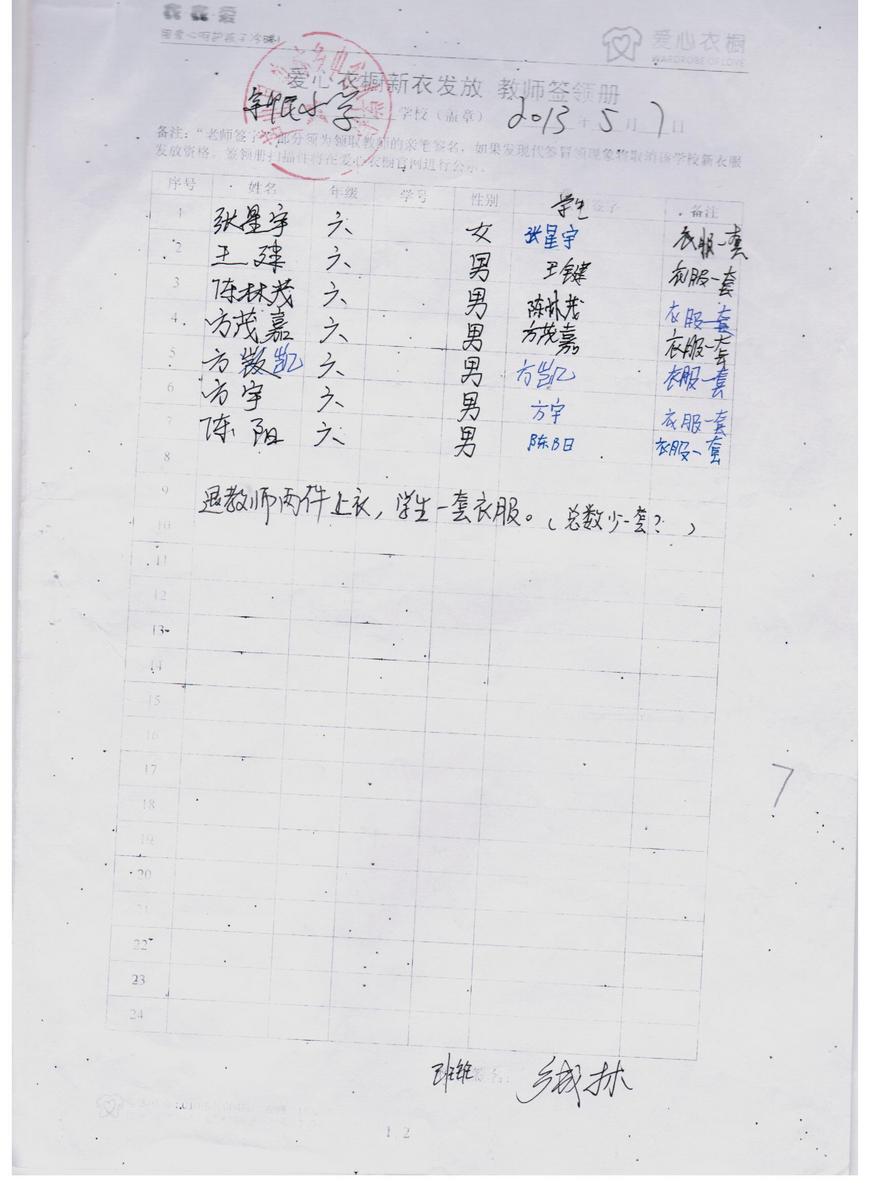 爱心衣橱
WARDROBE OF LOVE
爱心衣橱新衣发放 教师签领册
小学 学校（盖章） 2013 年 5 月 7 日
备注：“老师签字”部分须为领取教师的亲笔签名，如果发现代签冒领现象将取消该学校新衣服
发放资格。签领册扫描件将在爱心衣橱官网进行公示。
序号 姓名 年级 学号 性别 学生签字 备注
1 张星宇 六 女 张星宇 衣服一套
2 王键 六 男 王键 衣服一套
3 陈林茂 六 男 陈林茂 衣服一套
4 方茂嘉 六 男 方茂嘉 衣服一套
5 方凯 六 男 方凯 衣服一套
6 方宇 六 男 方宇 衣服一套
7 陈阳 六 男 陈阳 衣服一套
8
9 退教师两件上衣，学生一套衣服。（总数少一套？）
10
11
12
13
14
15
16
17
7
18
19
20
21
22
23
24
签名：
12